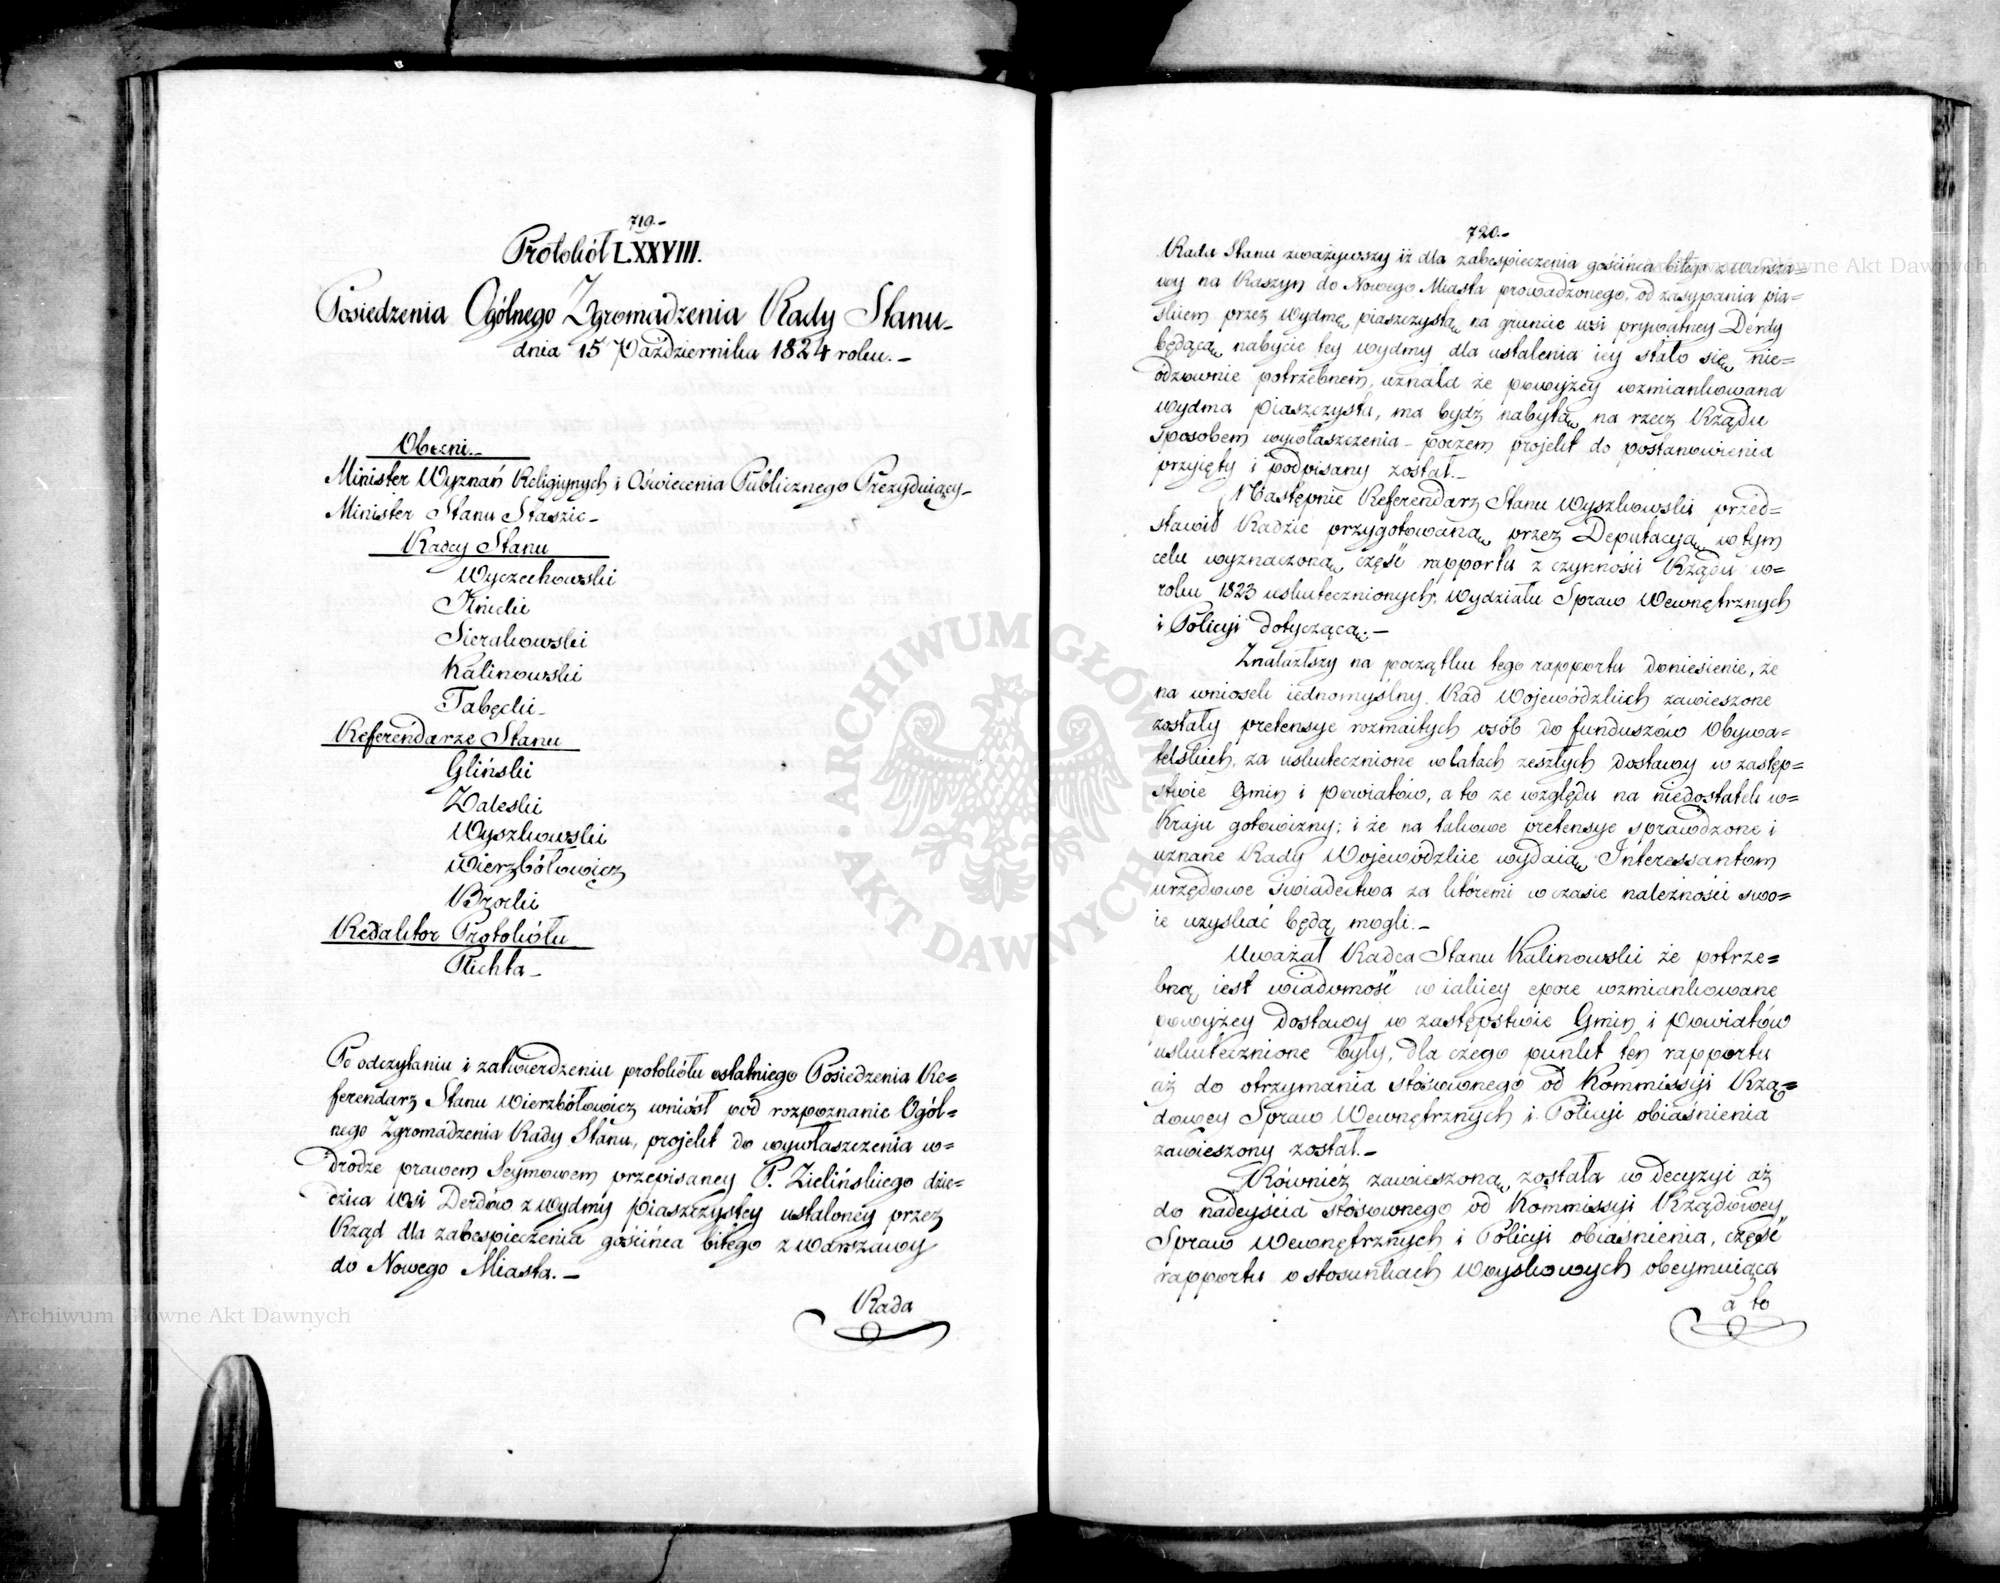 719.-
Protokół LXXVIII.
Posiedzenia Ogólnego Zgromadzenia Rady Stanu-
dnia 15 Października 1824 roku.-
Obecni.-
Minister Wyznań Religiynych i Oświecenia Publicznego Prezyduiący-
Minister Stanu Staszic-
Radcy Stanu
Wyczechowski
Knedie
Sierakowski
Kalinowski
Tabęcki-
Referendarze Stanu
Gliński
Zaleski
Wyszkowski
Wierzbołowicz
Brocki
Redaktor Protokółu
Plichta-
Po odczytaniu i zatwierdzeniu protokółu ostatniego Posiedzenia Re=
ferendarz Stanu Wierzbołowicz wniósł pod rozpoznanie Ogól=
nego Zgromadzenia Rady Stanu, projekt do wywłaszczenia w=
drodze prawem Seymowem przepisaney P. Zielińskiego dzie=
dzica wsi Derdów z wydmy piaszczystey ustaloney przez
Rząd dla zabespieczenia gościńca bitego z Warszawy
do Nowego Miasta.-
Rada
720.-
Rada Stanu zważywszy iż dla zabespieczenia gościńca bitego z Warsza=
wy na Raszyn do Nowego Miasta prowadzonego, od zasypania pia=
skiem przez wydmę piaszczystą na gruncie wsi prywatney Derdy
będącą, nabycie tey wydmy dla ustalenia iey stało się nie=
odzownie potrzebnem, uznała że powyżey wzmiankowana
wydma piaszczysta, ma bydź nabytą na rzecz Rządu
sposobem wywłaszczenia- poczem projekt do postanowienia
przyięty i podpisany został.-
Następnie Referendarz Stanu Wyszkowski przed=
stawił Radzie przygotowaną przez Deputacyą w tym
celu wyznaczoną część rapportu z czynności Rządu w=
roku 1823 uskutecznionych, wydziału Spraw Wewnętrznych
i Policyi dotyczącą.-
Znalazłszy na początku tego rapportu doniesienie, że
na wniosek iednomyślny Rad Wojewódzkich zawieszone
zostały pretensye rozmaitych osób do funduszów Obywa=
telskich, za uskutecznione w latach zeszłych dostawy w zastęp=
stwie Gmin i powiatów, a to ze względu na niedostatek w=
Kraju gotowizny; i że na takowe pretensye sprawdzone i
uznane Rady Wojewódzkie wydaią Interessantom
urzędowe świadectwa za któremi w czasie należności swo=
ie uzyskać będą mogli.-
Uważał Radca Stanu Kalinowski że potrze=
bną iest wiadomość w iakiey epoce wzmiankowane
powyżey dostawy w zastępstwie Gmin i powiatów
uskutecznione były, dla czego punkt ten rapportu
aż do otrzymania stósownego od Kommissyi Rzą=
dowey Spraw Wewnętrznych i Policyi obiaśnienia
zawieszony został.-
Również zawieszoną została w decyzyi aż
do nadeyścia stósownego od Kommissyi Rządowey
Spraw Wewnętrznych i Policyi obiaśnienia, część
rapportu o stosunkach woyskowych obeymuiąca
a to
Archiwum Główne Akt Dawnych
Archiwum Główne Akt Dawnych
ARCHIWUM GŁÓWNE AKT DAWNYCH